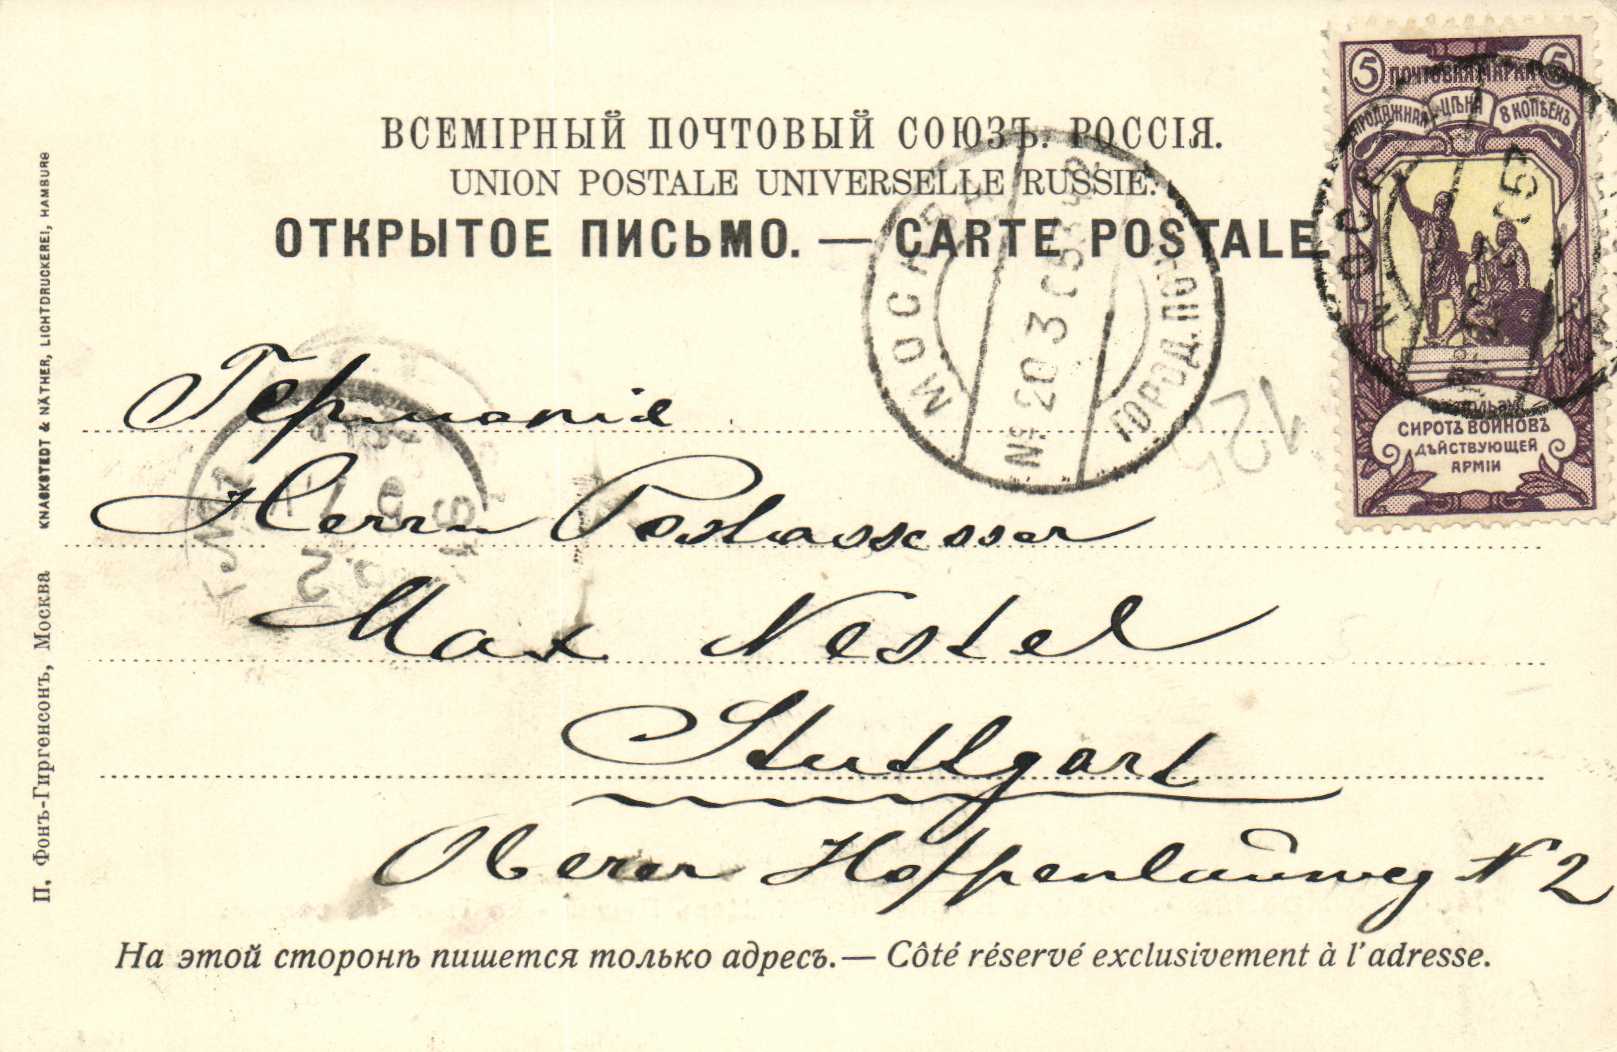 ВСЕМІРНЫЙ ПОЧТОВЫЙ СОЮЗЪ. РОССІЯ.
UNION POSTALE UNIVERSELLE RUSSIE.
ОТКРЫТОЕ ПИСЬМО. — CARTE POSTALE.
5 ПОЧТОВАЯ МАРКА 5
ПРОДАЖНАЯ ЦѢНА 8 КОПѢЕКЪ
ВЪ ПОЛЬЗУ
СИРОТЪ ВОИНОВЪ
ДѢЙСТВУЮЩЕЙ
АРМІИ
МОСКВА
20 3 05
ГОРОД. ПОЧТ.
Германія
Herrn Postassessor
Max Nestel
Stuttgart
Oberer Hoppenlauweg N 2
На этой сторонѣ пишется только адресъ.— Côté réservé exclusivement à l'adresse.
П. Фонъ-Гиргенсонъ, Москва
KNACKSTEDT & NÄTHER, LICHTDRUCKEREI, HAMBURG